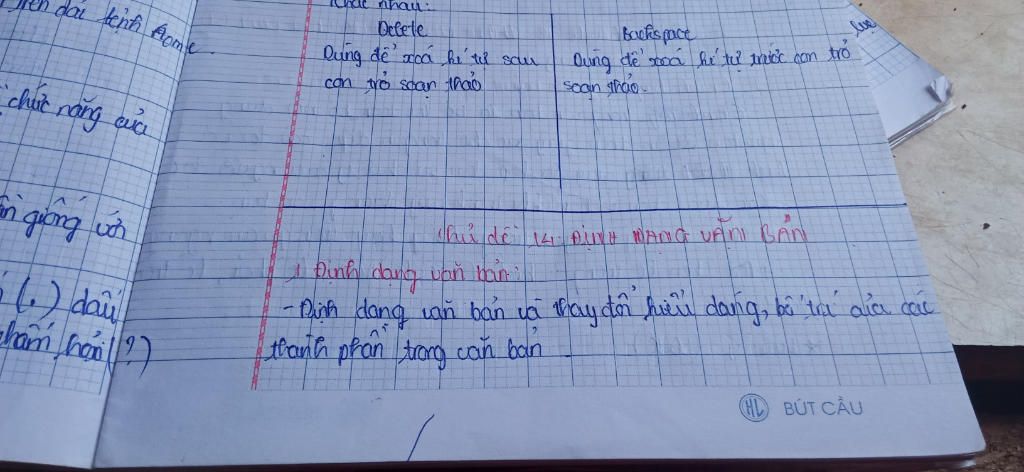 tên dài tệnh Home.
chức năng của
giống với
(.) dấu
chấm hỏi (?)
khác nhau:
Delete
Backspace
Dùng để xoá kí tự sau
con trỏ soạn thảo
Dùng để xoá kí tự trước con trỏ
soạn thảo.
Chủ đề 14: ĐỊNH DẠNG VĂN BẢN
1 Định dạng văn bản:
- Định dạng văn bản và thay đổi kiểu dáng, bố trí của các
thành phần trong văn bản
HL BÚT CẦU